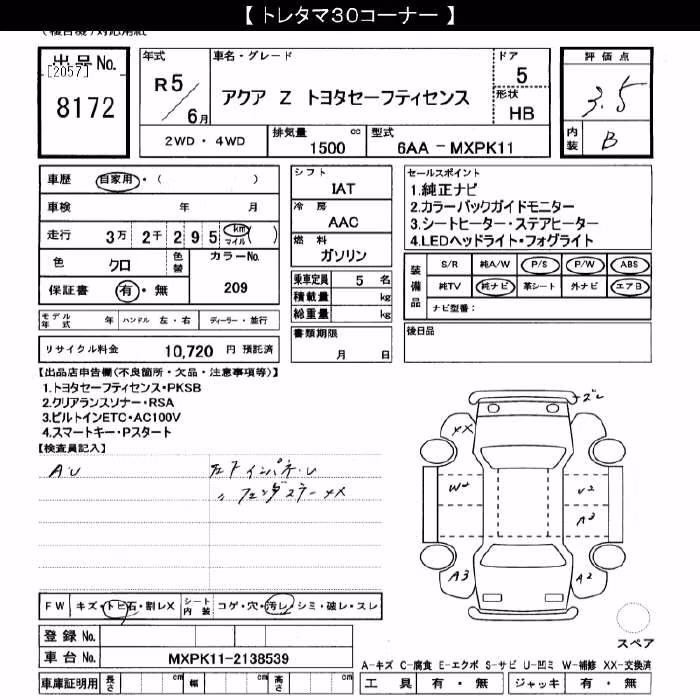 【 トレタマ30コーナー 】
出品 No. [2057] 8172
年式 R5 / 6月
車名・グレード アクア Z トヨタセーフティセンス
ドア 5
形状 HB
評価点 3.5
内装 B
2WD・4WD 排気量 1500 cc 型式 6AA - MXPK11
車歴 自家用・( )
車検 年 月
走行 3万 2千 2 9 5 km マイル ( )
色 クロ 色替 カラーNo. 209
保証書 有・無
モデル年式 年 ハンドル 左・右 ディーラー・並行
リサイクル料金 10,720 円 預託済
シフト IAT
冷房 AAC
燃料 ガソリン
乗車定員 5 名
積載量 kg
総重量 kg
書類期限 月 日
セールスポイント
1.純正ナビ
2.カラーバックガイドモニター
3.シートヒーター・ステアヒーター
4.LEDヘッドライト・フォグライト
装備品 S/R 純A/W P/S P/W ABS
純TV 純ナビ 革シート 外ナビ エアB
ナビ型番:
後日品
【出品店申告欄(不良箇所・欠品・注意事項等)】
1.トヨタセーフティセンス・PKSB
2.クリアランスソナー・RSA
3.ビルトインETC・AC100V
4.スマートキー・Pスタート
【検査員記入】
A・U
XX
W2
U2
A3
A3
A2
FW キズ・トビ石・割レX シート内装 コゲ・穴・汚レ・シミ・破レ・スレ
登録 No.
車台 No. MXPK11-2138539
車庫証明用 長さ cm 幅 cm 高さ cm
スペア
A-キズ C-腐食 E-エクボ S-サビ U-凹ミ W-補修 XX-交換済
工具 有・無 ジャッキ 有・無